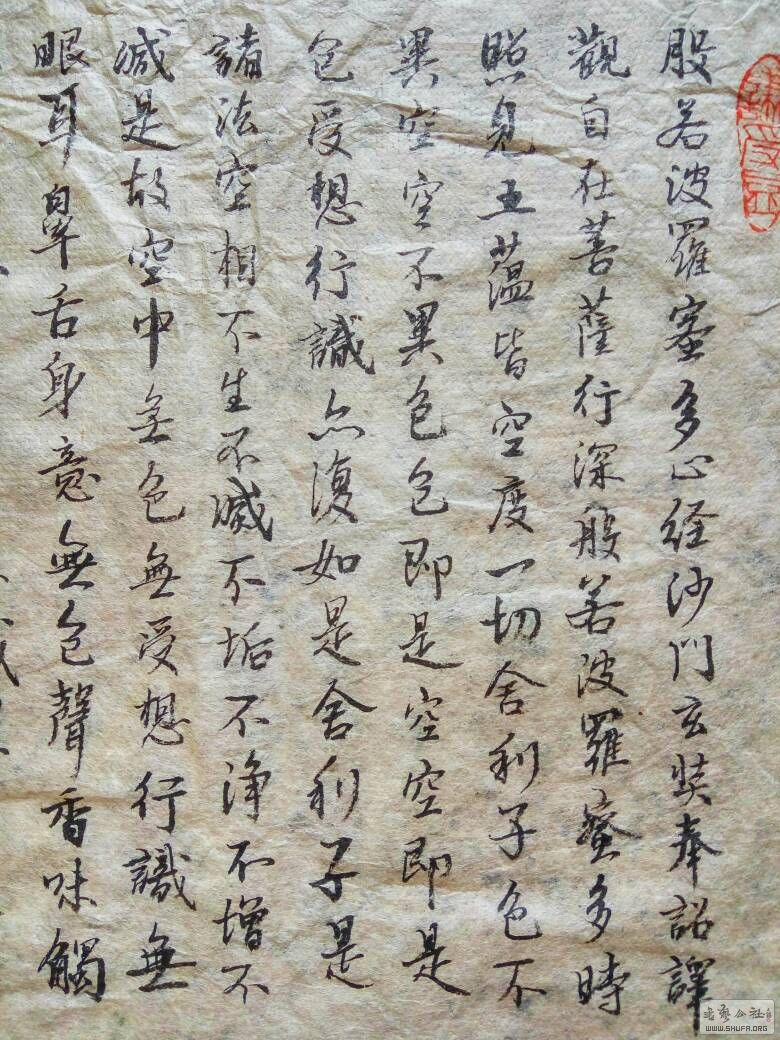 般若波羅蜜多心経沙門玄奘奉詔譯
觀自在菩薩行深般若波羅蜜多時
照見五蘊皆空度一切舍利子色不
異空空不異色色即是空空即是
色受想行識亦復如是舍利子是
諸法空相不生不滅不垢不淨不增不
減是故空中無色無受想行識無
眼耳鼻舌身意無色聲香味觸
WWW.SHUFA.ORG